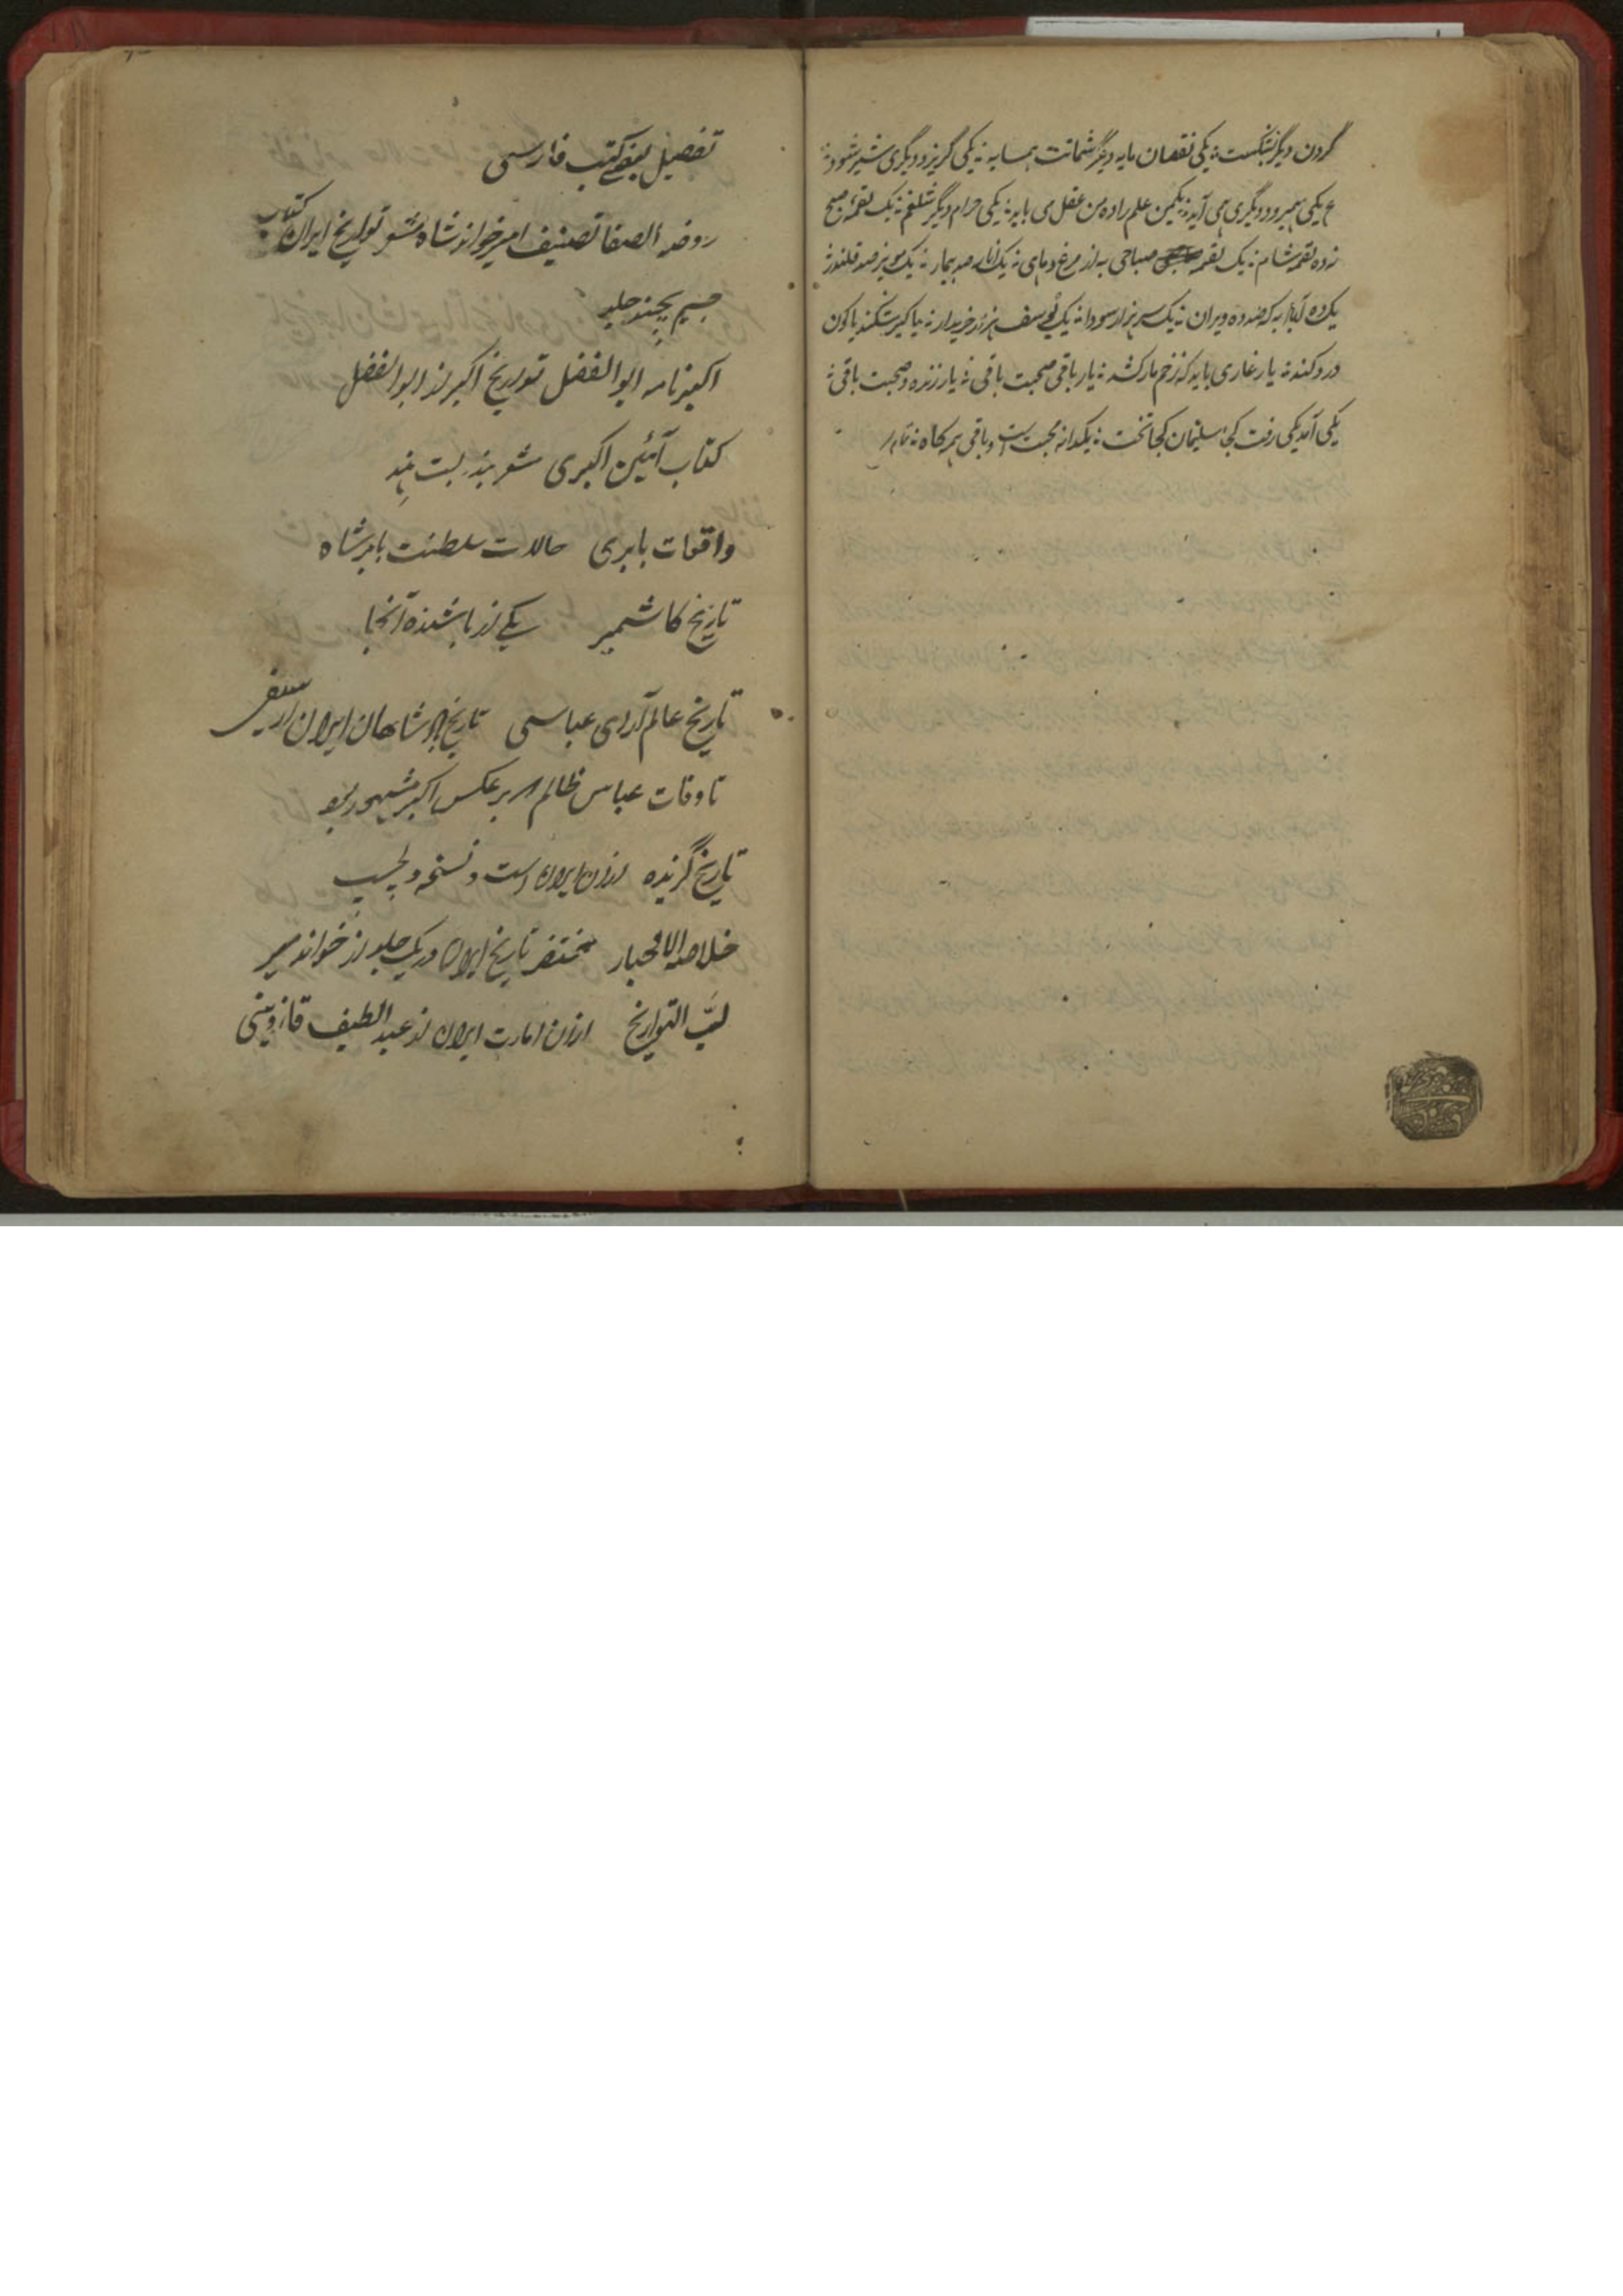 گردن دیگر بشکست ؞ یکی نقصان مایه دیگر شماتت همسایه ؞ یکی گریزد دیگری شیر شود ؞
ع یکی همیرود دیگری همی آید ؞ یکمن علم را ده من عقل می باید ؞ یکی حرام دیگر شلغم ؞ یک لقمهٔ صبح
نه ده لقمه شام ؞ یک لقمه صباحی به از مرغ و ماهی ؞ یک انار صد بیمار ؞ یک مویز صد قلندر ؞
یک ده آباد به که صد ده ویران ؞ یک سر هزار سودا ؞ یک یوسف هزار خریدار ؞ یا کیر شکند یا کون
درد کند ؞ یار غاری باید که زخم مار کشد ؞ یار باقی صحبت باقی ؞ یار زنده و صحبت باقی ؞
یکی آمد یکی رفت کجا سلیمان کجا تخت ؞ یکدانه محبت است و باقی همه کاه ؞
تفصیل بعضے کتب فارسی
روضه الصفا تصنیف امیر خواند شاه تواریخ ایران کتاب
جسیم بچند جلد
اکبر نامه ابو الفضل تواریخ اکبر از ابو الفضل
کتاب آئین اکبری هند
واقعات بابری حالات سلطنت بابر شاه
تاریخ کاشمیر یکے از باشنده آنجا
تاریخ عالم آرای عباسی تاریخ شاهان ایران
تا وفات عباس ظالم برعکس اکبر مشهور بود
تاریخ گزیده ازان ایران است و نسخه دلچسپ
خلاصه الاخبار مختصر تاریخ ایران در یک جلد از خواند میر
لبّ التواریخ ازان امارت ایران از عبد الطیف قازوینی